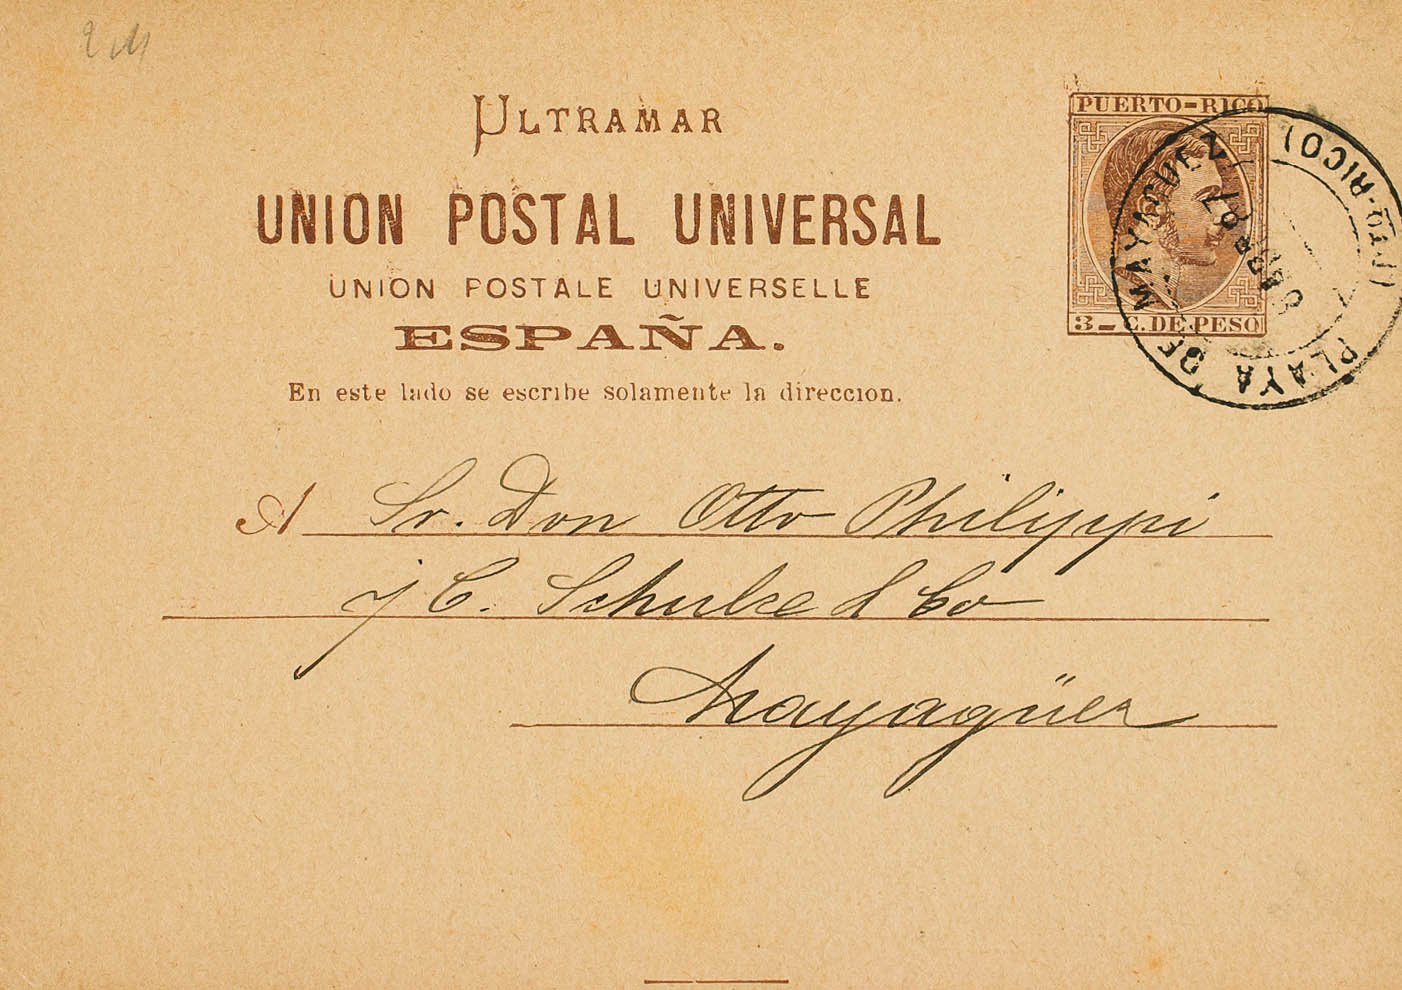 ULTRAMAR
UNION POSTAL UNIVERSAL
UNION POSTALE UNIVERSELLE
ESPAÑA.
En este lado se escribe solamente la direccion.
PUERTO-RICO
3-C. DE PESO
PLAYA DE MAYAGUEZ (PTO-RICO)
87
A Sr. Don Otto Philippi
C. Schulze & Co
Mayagüez